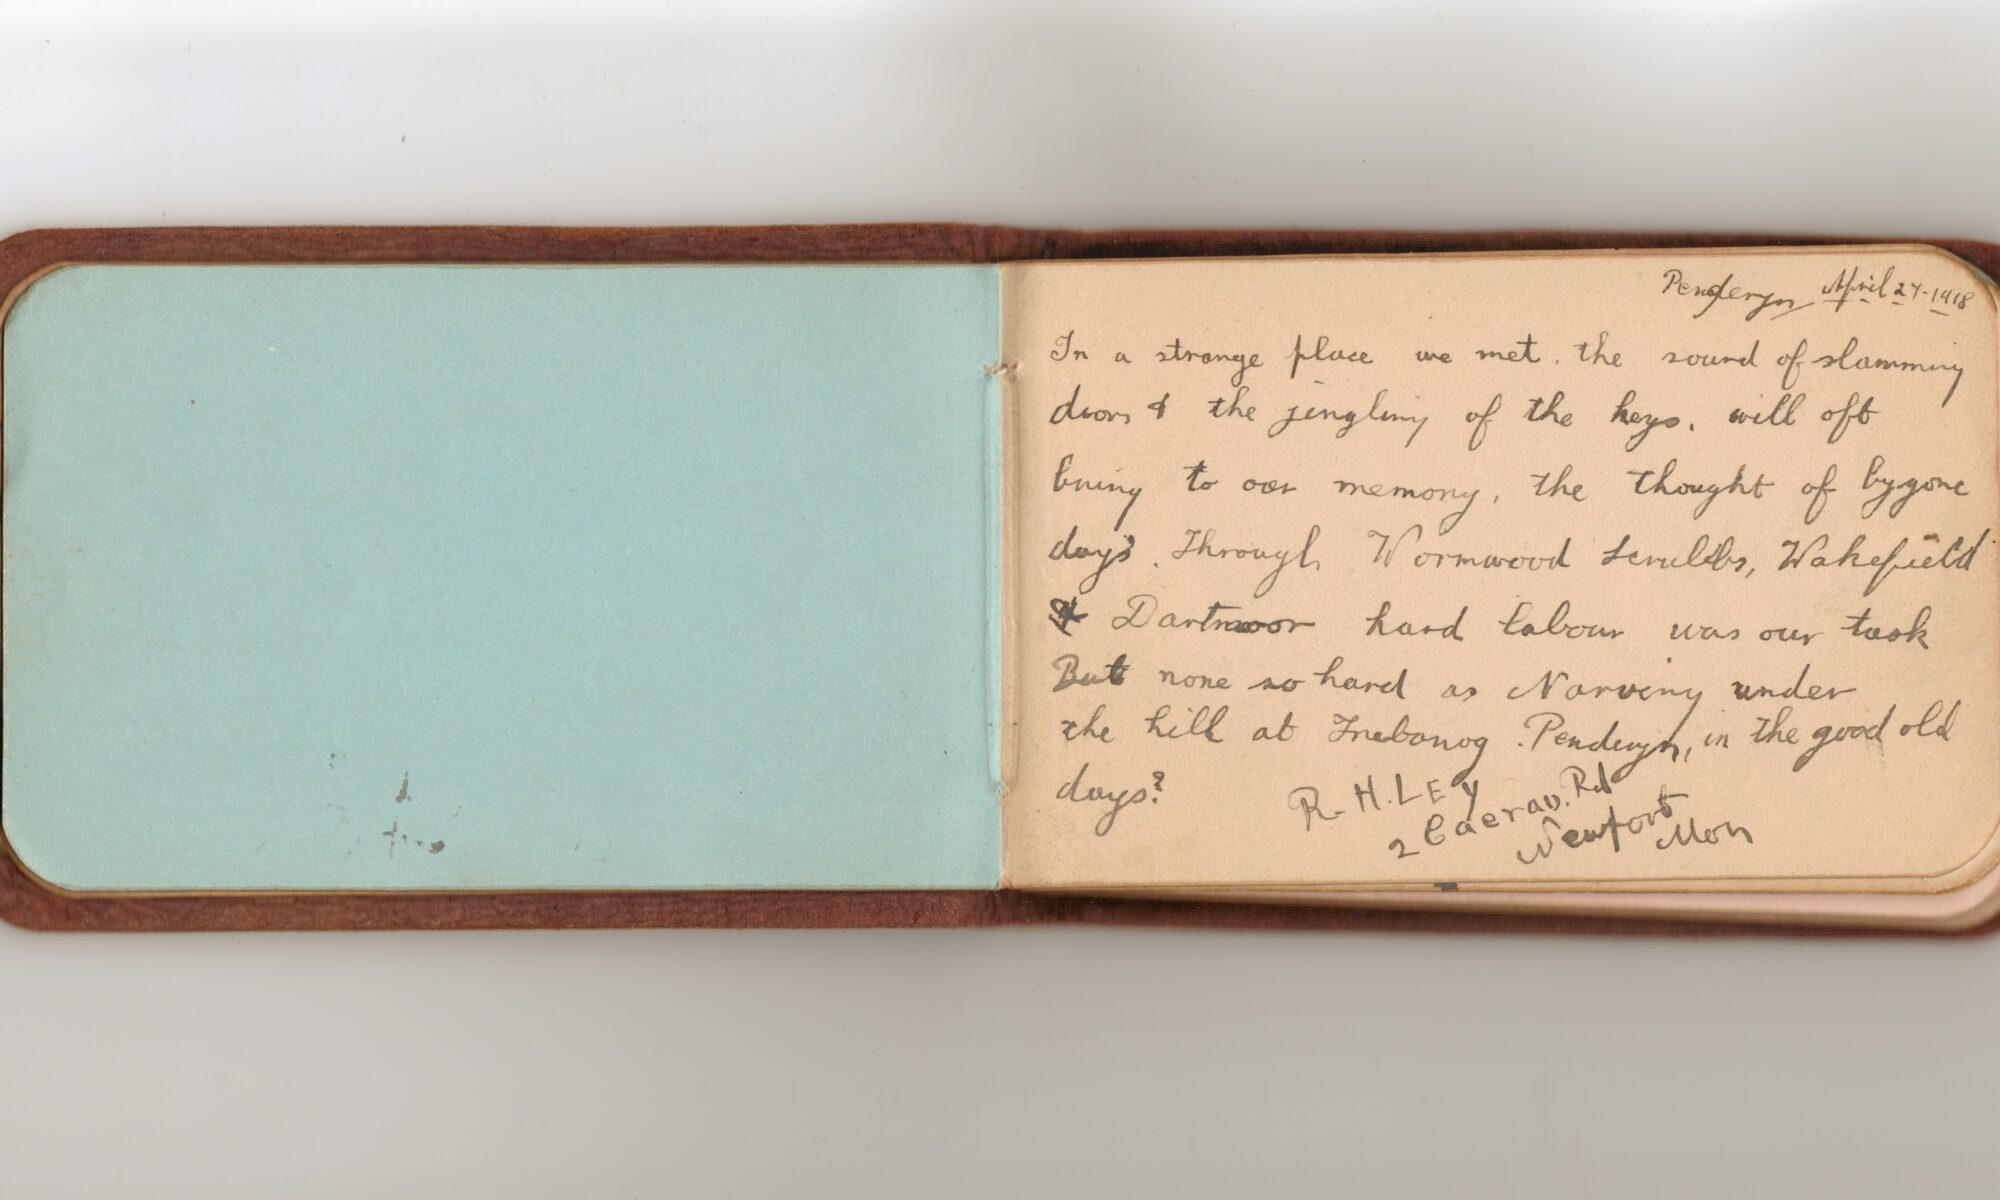 Penderyn April 27-1918
In a strange place we met. the sound of slamming
doors & the jingling of the keys. will oft
bring to our memory, the thought of bygone
days. Through Wormwood Scrubbs, Wakefield
& Dartmoor hard labour was our task
But none so hard as Navving under
the hill at Trebanog. Penderyn, in the good old
days?
R. H. LEY
2 Caerau. Rd
Newport
Mon